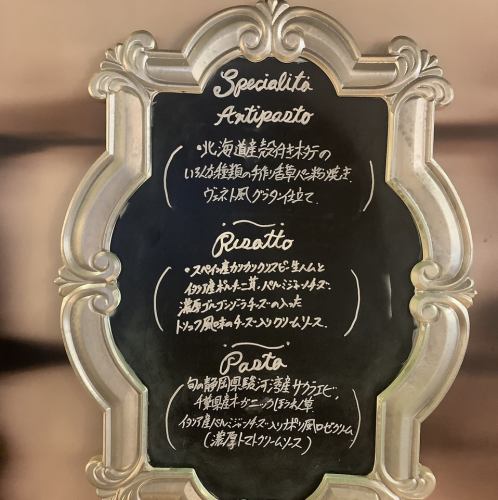 Specialità
Antipasto
・北海道産殻付きホタテの
いろんな種類の手作り香草パン粉焼き
ヴェネト風グラタン仕立て
Risotto
・スペイン産カリカリクリスピー生ハムと
イタリア産ポルチーニ茸、パルミジャーノチーズ、
濃厚ゴルゴンゾーラチーズの入った
トリュフ風味のチーズ入りクリームソース.
Pasta
旬の静岡県駿河湾産サクラエビ、
千葉県産オーガニックほうれん草
イタリア産パルミジャーノチーズ入りナポリ風ロゼクリーム
(濃厚トマトクリームソース)